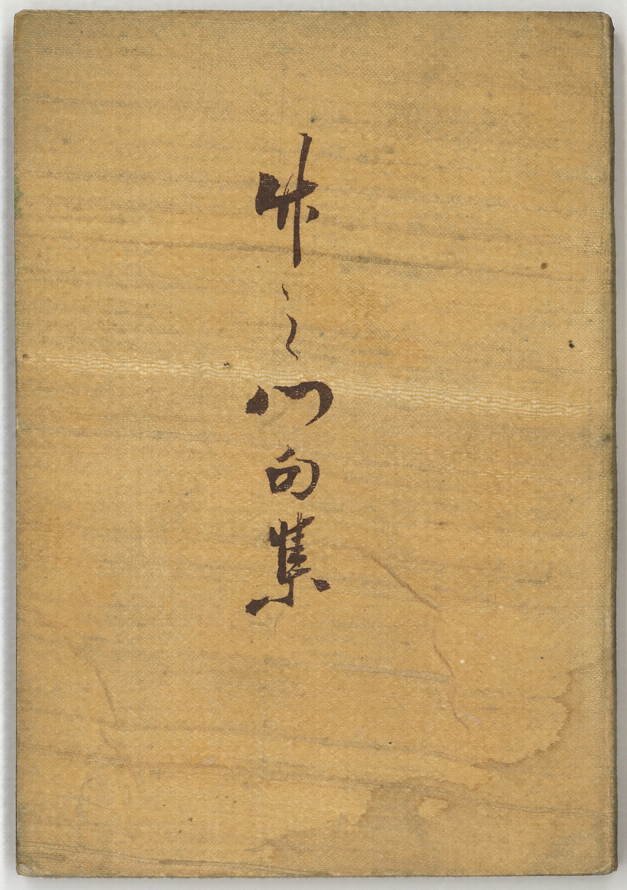 竹之門句集